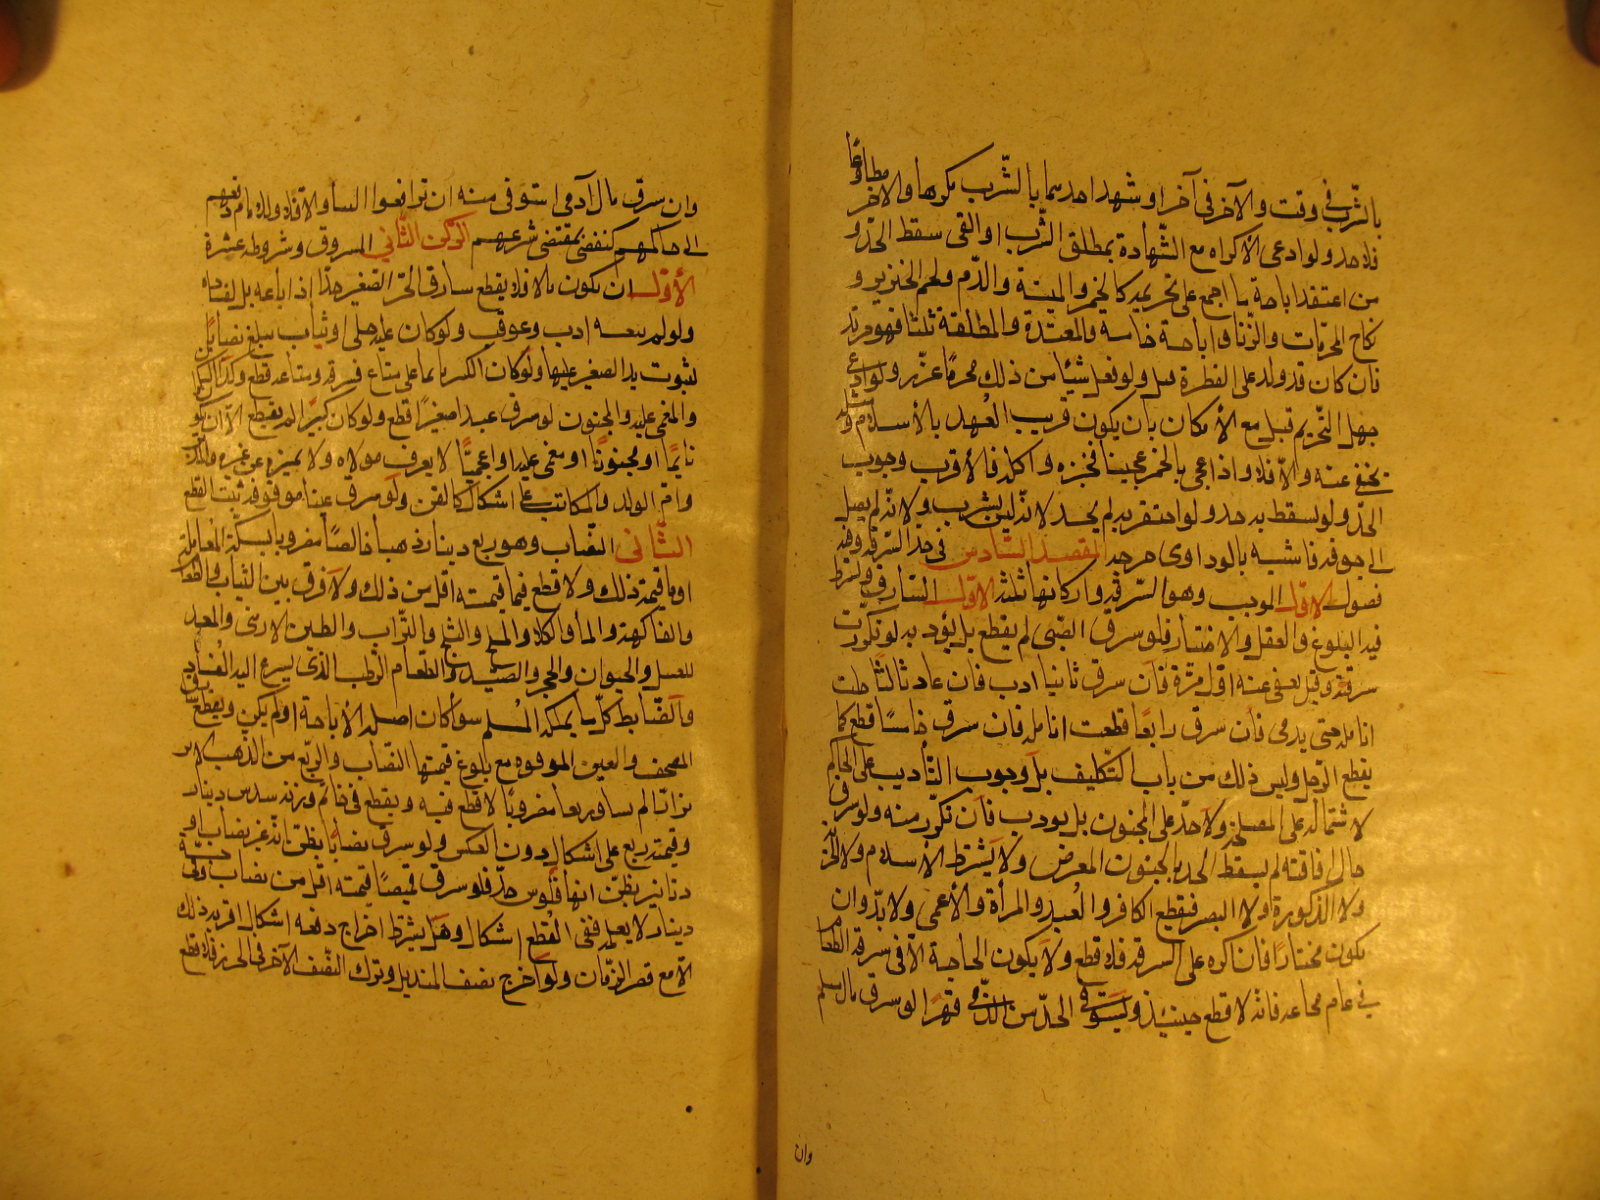 بالشرب في وقت والآخر في آخر او شهد احدهما بالشرب مكرها والآخر مطاوعًا
فلا حد ولو ادعى الاكراه مع الشهادة بمطلق الشرب او القى سقط الحد و
من اعتقد اباحة ما اجمع على تحريمه كالخمر والميتة والدم ولحم الخنزير و
نكاح المحرمات والزنا واباحة خامسة والمعتدة والمطلقة ثلثا فهو مرتد
فان كان قد ولد على الفطرة قتل ولو فعل شيئا من ذلك محرمًا عزر ولو ادعى
جهل التحريم قبل مع الامكان بان يكون قريب العهد بالاسلام و
يخفى عنه والا فلا واذا عجن بالخمر عجينا فخبزه واكله فالاقرب وجوب
الحد ولو تسقط به حد ولو احتقن به لم يحد لانه ليس بشرب ولانه لم يصل
الى جوفه فاشبه ما لو داوى جرحه المقصد السادس في حد السرقة وفيه
فصول الاول الموجب وهو السرقة واركانها ثلثة الاول السارق ويشترط
فيه البلوغ والعقل والاختيار فلو سرق الصبي لم يقطع بل يؤدب ولو تكررت
سرقته وقيل يعفى عنه اول مرة فان سرق ثانيا ادب فان عاد ثالثًا حكت
انامله حتى يدمى فان سرق رابعًا قطعت انامله فان سرق خامسًا قطع كما
يقطع الرجل وليس ذلك من باب التكليف بل وجوب التأديب على الحاكم
لاشتماله على المصلحة ولا حد على المجنون بل يودب فان تكرر منه ولو سرق
حال افاقته لم يسقط الحد بالجنون المعرض ولا يشترط الاسلام ولا الحرية
ولا الذكورة ولا البصر فيقطع الكافر والعبد والمرأة والاعمى ولا بد وان
يكون مختارًا فان اكره على السرقة فلا قطع ولا يكون الحاجة الا في سرقة الطعام
في عام مجاعة فانه لا قطع حينئذ ويستوفى الحد من الذمي قهرًا لو سرق مال مسلم
وان
وان سرق مال آدمي استوفى منه ان ترافعوا الينا والا فلا وللامام دفعهم
الى حاكمهم ليقضي بمقتضى شرعهم الركن الثاني المسروق وشروطه عشرة
الاول ان يكون مالا فلا يقطع سارق الحر الصغير حدًا اذا باعه بل لفساده
ولو لم يبعه ادب وعوقب ولو كان عليه حلي او ثياب يبلغ نصابًا
لثبوت يد الصغير عليها ولو كان الكبير نائما على متاع فسرقه ومتاعه قطع وكذا السكران
والمغمى عليه والمجنون لو سرق عبدا صغيرًا قطع ولو كان كبيرًا لم يقطع الا ان يكون
نائمًا او مجنونًا او مغمى عليه او اعجميًا لا يعرف مولاه ولا يميزه عن غيره والمدبر
وام الولد والمكاتب على اشكال كالقن ولو سرق عينا موقوفة ثبت القطع
الثاني النصاب وهو ربع دينار ذهبا خالصًا مضروبا بسكة المعاملة
او ما قيمته ذلك ولا قطع فيما قيمته اقل من ذلك ولا فرق بين الثياب والطعام
والفاكهة والماء والكلاء والملح والثلج والتراب والطين الارمني والمعد
للغسل والحيوان والحجر والصيد والطعام الرطب الذي يسرع اليه الفساد
والضابط كل ما يملكه المسلم سواء كان اصله الاباحة او لم يكن ويقطع سارق
المصحف والعين الموقوفة مع بلوغ قيمتها النصاب والربع من الذهب الابر
تراثا لم يساو ربعا مضروبًا لا قطع فيه ويقطع في خاتم وزنه سدس دينار
وقيمته ربع على اشكال دون العكس ولو سرق نصابًا يظن انه غير نصاب او
دنانير يظن انها فلوس حد فلو سرق قميصًا قيمته اقل من نصاب وفي جيبه
دينار لا يعلمه ففي القطع اشكال وهل يشترط اخراج دفعه اشكال اقربه ذلك
الا مع قصر الزمان ولو اخرج نصف المنديل وترك النصف الآخر في الحرز فلا قطع